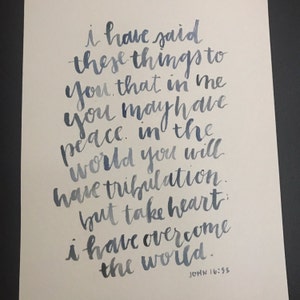 i have said
these things to
you, that in me
you may have
peace. in the
world you will
have tribulation.
but take heart;
i have overcome
the world.
JOHN 16:33